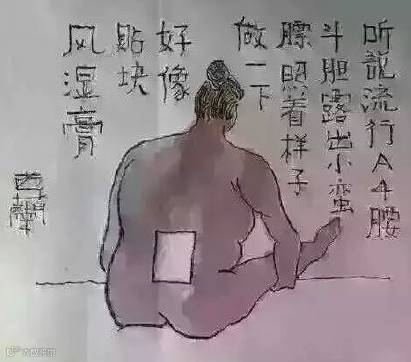 听说流行A4腰
斗胆露出小蛮
腰照着样子
做一下
好像
贴块
风湿膏